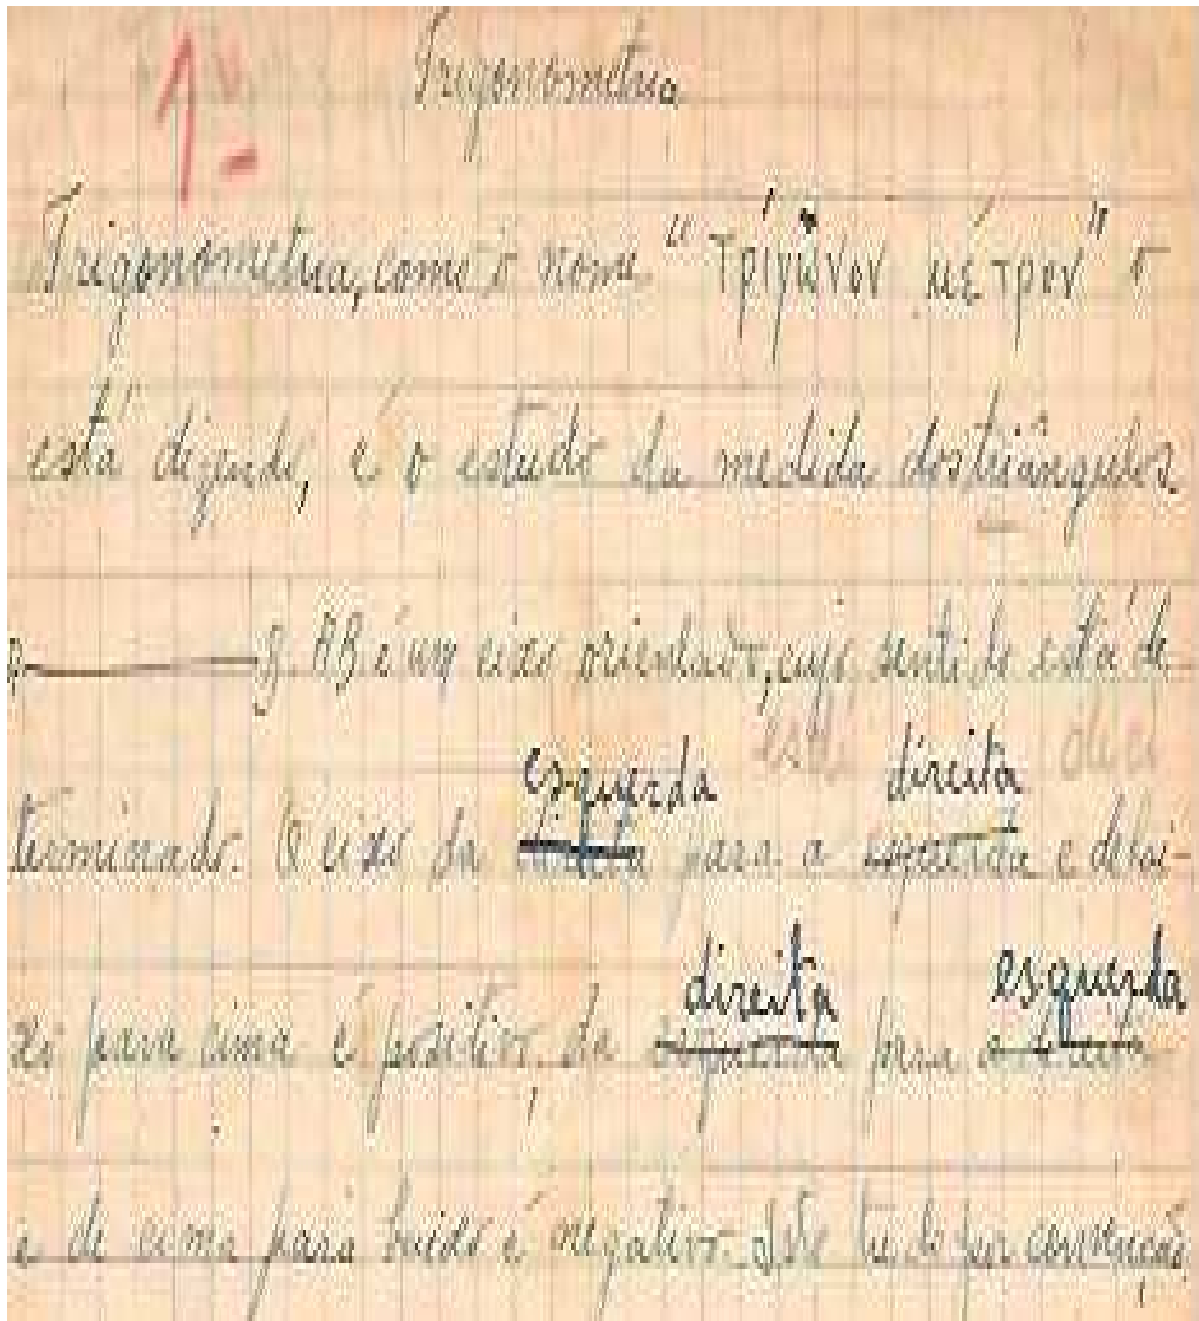 1º
Trigonometria
Trigonometria, como o nome "τρίγωνον μέτρον" o
está dizendo, é o estudo da medida dos triângulos.
B. AB é um eixo orientado, cujo sentido está de
esquerda direita
terminado. O eixo da direita para a esquerda e debai-
direita esquerda
xo para cima é positivo, da esquerda para a direita
e de cima para baixo é negativo. Isto tudo por convenção